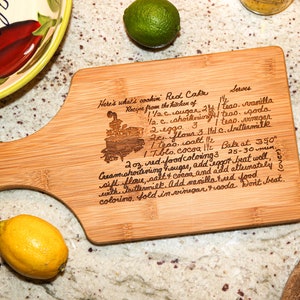 Here's what's cookin' Red Cake Serves
Recipe from the kitchen of
1½ c. sugar 2½ 1 teas. vanilla
½ c. shortening 1 teas. soda
2 eggs 1 teas. vinegar
2 c. flour 3 1 c. buttermilk
1 teas. salt Bake at 350°
1 Tbls. cocoa 25-30 min.
2 oz red food coloring
Cream shortening & sugar, add eggs & beat well,
sift flour, salt & cocoa and add alternately
with buttermilk. Add vanilla & red food
coloring, fold in vinegar & soda. Don't beat.